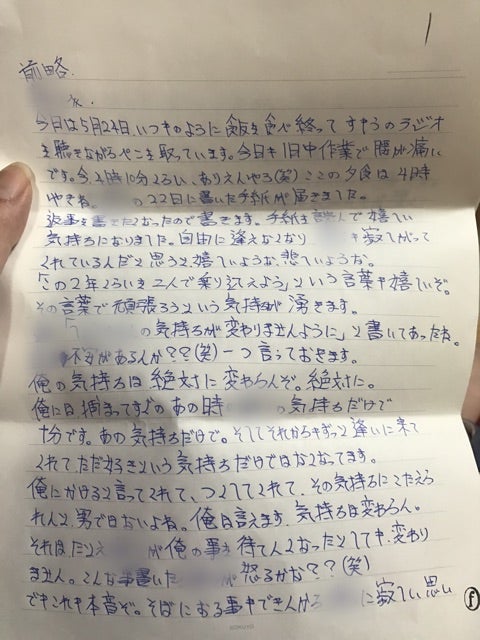 1
前略
え、
今日は5月24日、いつものように飯を食べ終って すもうのラジオ
を聴きながらペンを取っています。今日も1日中作業で腰が痛い
です。今、4時10分ぐらい、ありえんやろ(笑)ここの夕食は4時
やきね。 の22日に書いた手紙が届きました。
返事を書きたくなったので書きます。手紙を読んで嬉しい
気持ちになりました。自由に逢えなくなり も寂しがって
くれているんだと思うと嬉しいような、悲しいような。
「この2年ぐらいを二人で乗り越えよう」という言葉も嬉しいぞ。
その言葉で頑張ろうという気持ちが湧きます。
「 の気持ちが変わりませんように」と書いてあったね。
不安があるんか??(笑)一つ言っておきます。
俺の気持ちは絶対に変わらんぞ。絶対に。
俺には捕まってすぐのあの時 の気持ちだけで
十分です。あの気持ちだけで。そしてそれからもずっと逢いに来て
くれてただ好きという気持ちだけではなくなってます。
俺にかけると言ってくれて、つくしてくれて、その気持ちにこたえら
れんと、男ではないよね。俺は言えます、気持ちは変わらん。
それはたとえ が俺の事を待てんくなったとしても、変わり
ません。こんな事書いた 怒るかな??(笑)
でもこれも本音ぞ。そばにおる事もできんから に寂しい思い
KOKUYO